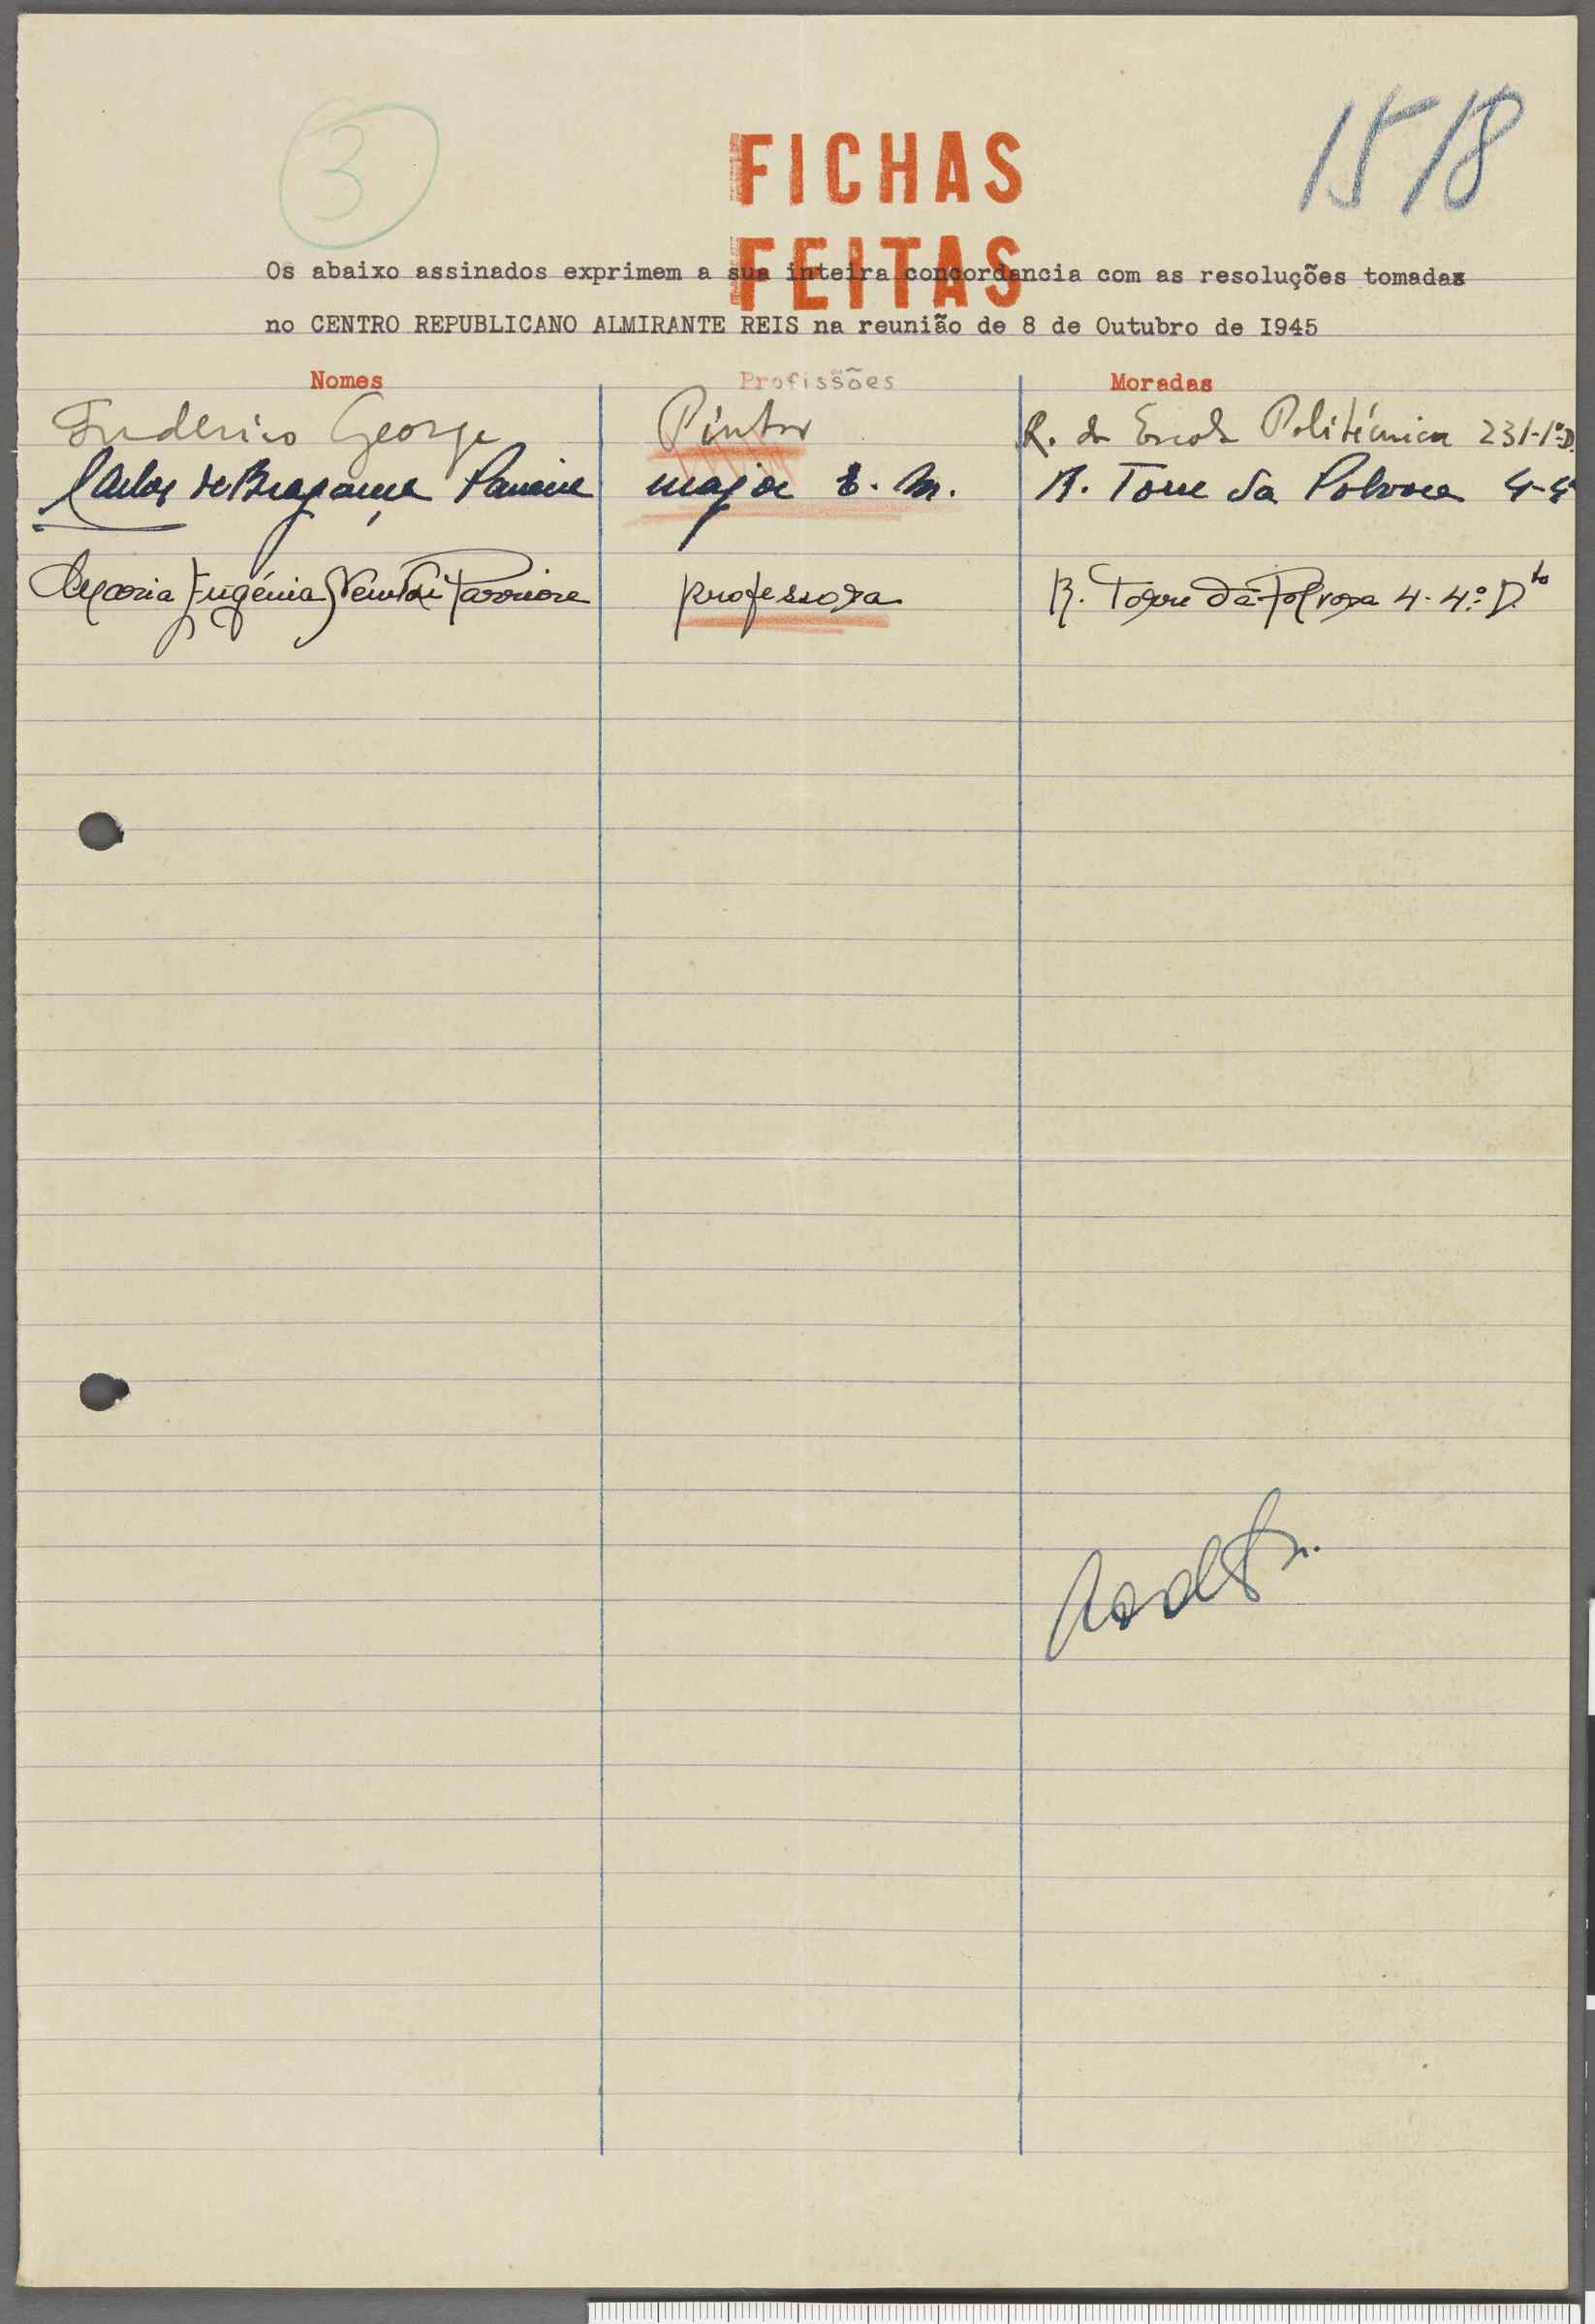 3
1518
FICHAS
FEITAS
Os abaixo assinados exprimem a sua inteira concordancia com as resoluções tomadas
no CENTRO REPUBLICANO ALMIRANTE REIS na reunião de 8 de Outubro de I945
Nomes Profissões Moradas
Frederico George Pintor R. da Escola Politécnica 231-1º-D.
Carlos de Bragança Parreira major E. M. R. Torre da Polvora 4-4º
Maria Eugénia Parreira professora R. Torre da Polvora 4-4.º D.to